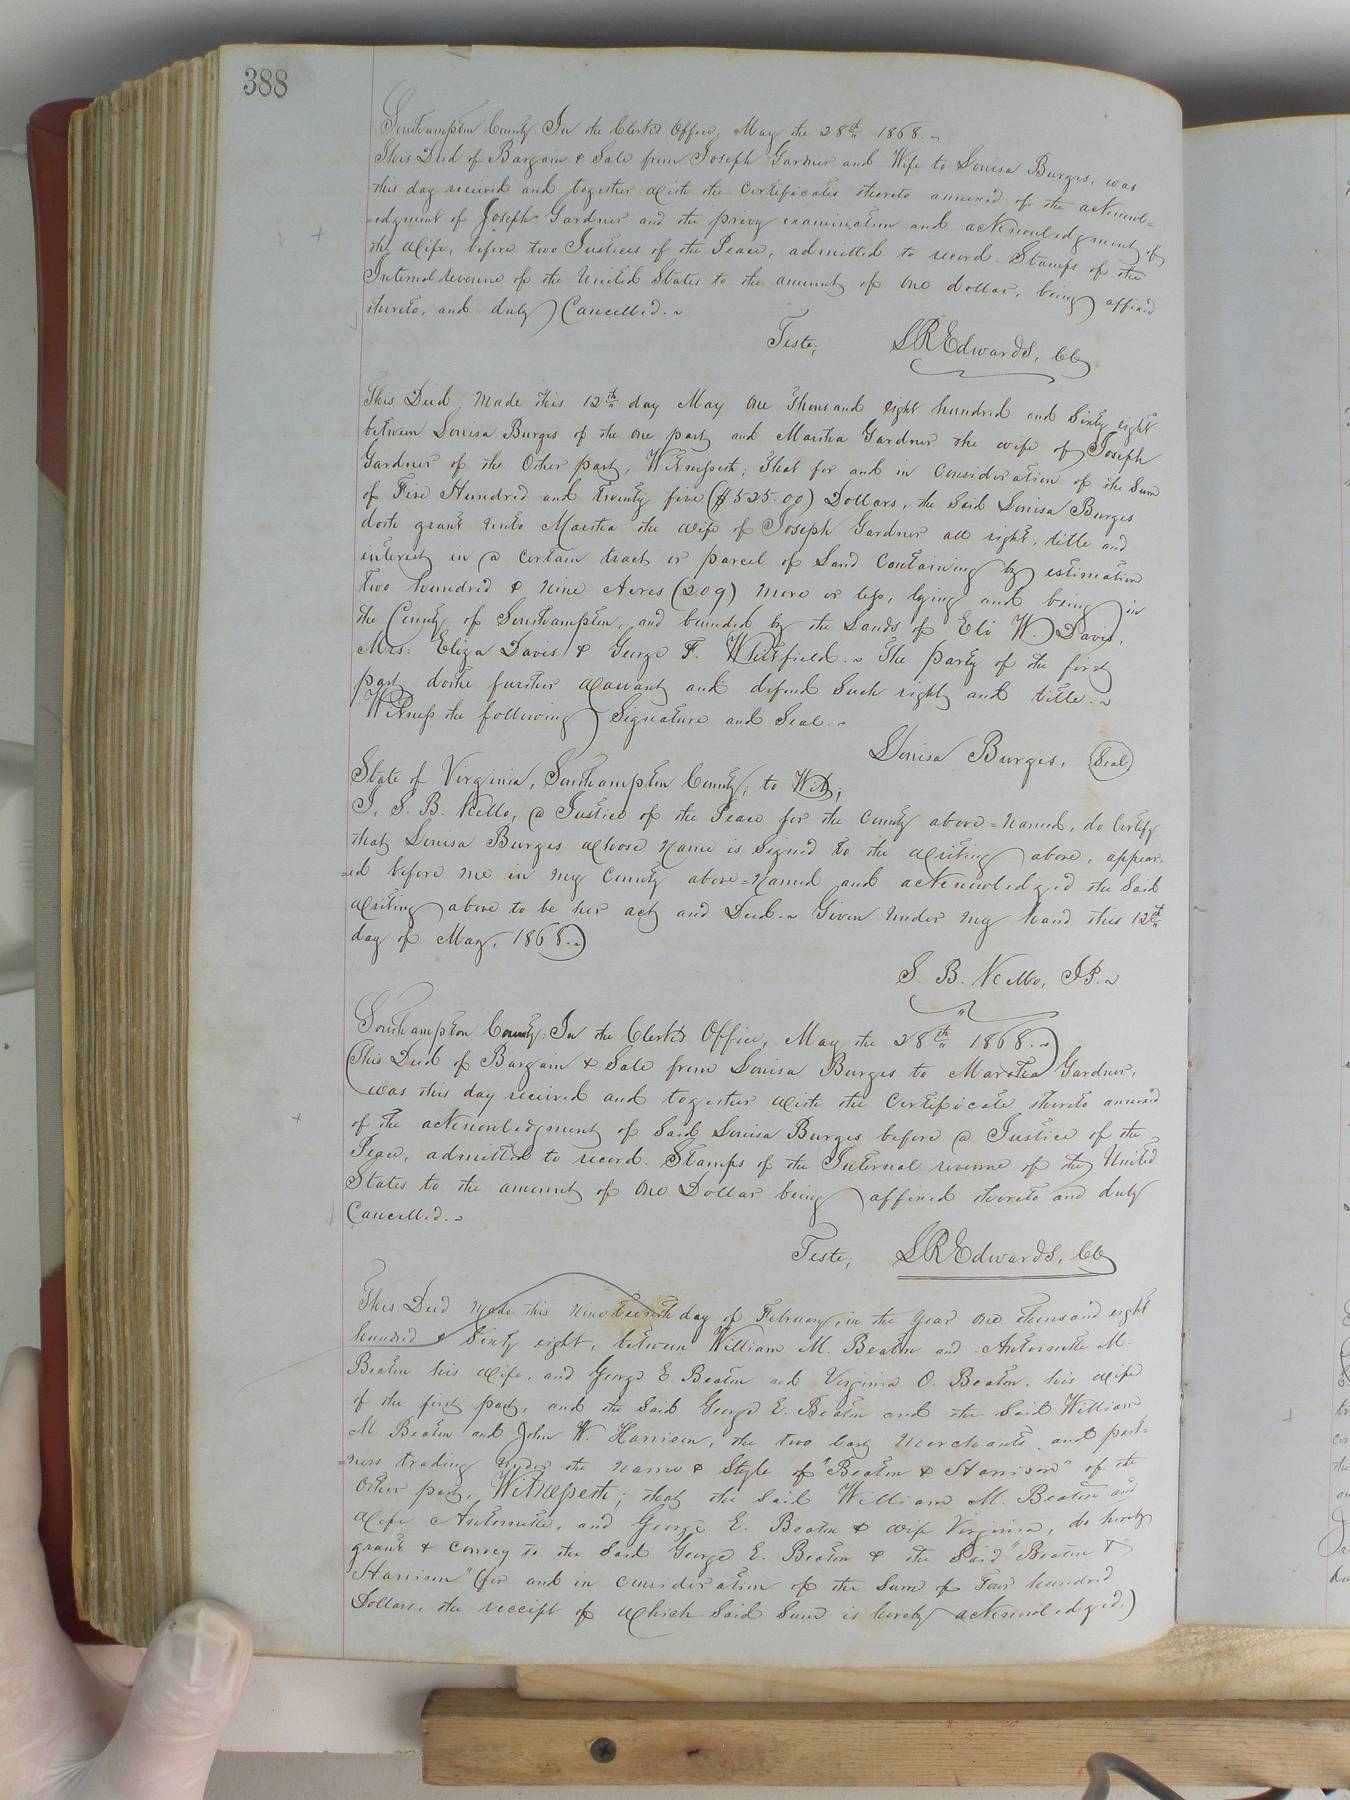 388
Southampton County. In the Clerk's Office, May the 28th 1868.
This Deed of Bargain & Sale from Joseph Gardner and Wife to Louisa Burges, was
this day received and together with the Certificates thereto annexed of the acknowl=
=edgment of Joseph Gardner and the privy examination and acknowledgment of
the Wife, before two Justices of the Peace, admitted to record. Stamps of the
Internal revenue of the United States to the amount of one dollar, being affixed
thereto, and duly Cancelled.
Teste, LREdwards, CC
This Deed Made this 12th day May One Thousand eight hundred and Sixty eight
between Louisa Burges of the one part and Martha Gardner the wife of Joseph
Gardner of the Other part, Witnesseth; That for and in Consideration of the Sum
of Five Hundred and Twenty five ($525.00) Dollars, the Said Louisa Burges
doth grant unto Martha the wife of Joseph Gardner all right, title and
interest in a certain tract or parcel of Land Containing by estimation
two hundred & nine Acres (209) more or less, lying and being in
the County of Southampton, and bounded by the Lands of Eli W. Davis,
Mrs: Eliza Davis & George F. Whitfield. The party of the first
part doth further Warrant and defend Such right and title.
Witness the following Signature and Seal.
Louisa Burges, Seal
State of Virginia, Southampton County; to Wit;
I, S. B. Kello, a Justice of the Peace for the County above=named, do Certify
that Louisa Burges whose name is Signed to the Writing above, appear=
=ed before me in my County above=named and acknowledged the Said
Writing above to be her act and Deed. Given Under my hand this 12th
day of May, 1868.
S. B. Kello, JP.
Southampton County. In the Clerk's Office, May the 28th 1868.
This Deed of Bargain & Sale from Louisa Burges to Martha Gardner,
was this day received and together with the Certificate thereto annexed
of the acknowledgment of Said Louisa Burges before a Justice of the
Peace, admitted to record. Stamps of the Internal revenue of the United
States to the amount of One Dollar being affixed thereto and duly
Cancelled.
Teste, LREdwards, CC
This Deed made this nineteenth day of February, in the year One thousand eight
hundred & Sixty eight, between William M. Beaton and Antoinette M.
Beaton his Wife, and George E. Beaton and Virginia O. Beaton, his wife
of the first part, and the Said George E. Beaton and the Said William
M. Beaton and John W. Harrison, the two last Merchants and part=
=ners trading under the name & Style of "Beaton & Harrison" of the
Other part, Witnesseth; that the Said William M. Beaton and
Wife Antoinette, and George E. Beaton & wife Virginia, do hereby
grant & convey to the Said George E. Beaton & the Said "Beaton &
Harrison" (for and in consideration of the Sum of Four hundred
Dollars, the receipt of which Said Sum is hereby acknowledged,)